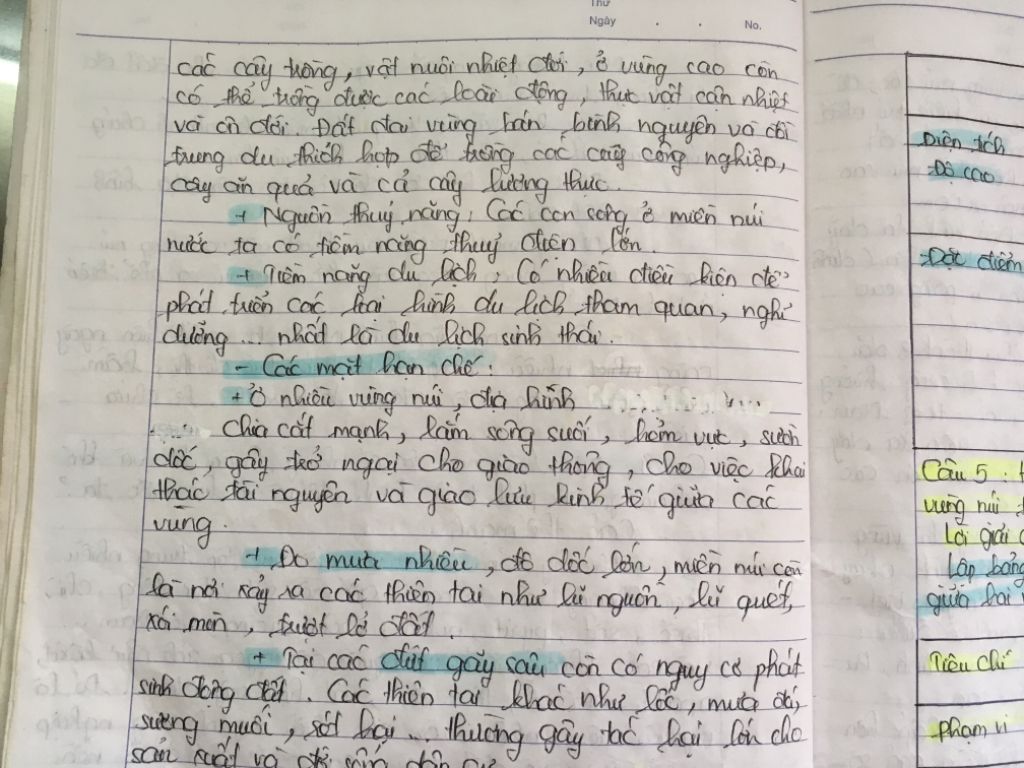 Thứ
Ngày . . No.
các cây trồng, vật nuôi nhiệt đới, ở vùng cao còn
có thể trồng được các loài động, thực vật cận nhiệt
và ôn đới. Đất đai vùng bán bình nguyên và đồi
trung du thích hợp để trồng các cây công nghiệp,
cây ăn quả và cả cây lương thực.
+ Nguồn thuỷ năng: Các con sông ở miền núi
nước ta có tiềm năng thuỷ điện lớn.
+ Tiềm năng du lịch: Có nhiều điều kiện để
phát triển các loại hình du lịch tham quan, nghỉ
dưỡng... nhất là du lịch sinh thái.
- Các mặt hạn chế:
+ Ở nhiều vùng núi, địa hình
chia cắt mạnh, lắm sông suối, hẻm vực, sườn
dốc, gây trở ngại cho giao thông, cho việc khai
thác tài nguyên và giao lưu kinh tế giữa các
vùng.
+ Do mưa nhiều, độ dốc lớn, miền núi còn
là nơi xảy ra các thiên tai như lũ nguồn, lũ quét,
xói mòn, trượt lở đất.
+ Tại các đứt gãy sâu còn có nguy cơ phát
sinh động đất. Các thiên tai khác như lốc, mưa đá,
sương muối, rét hại... thường gây tác hại lớn cho
sản xuất và đời sống dân cư
Diện tích
Độ cao
Đặc điểm
Câu 5:
vùng núi
Lời giải
Lập bảng
giữa hai
Tiêu chí
Phạm vi